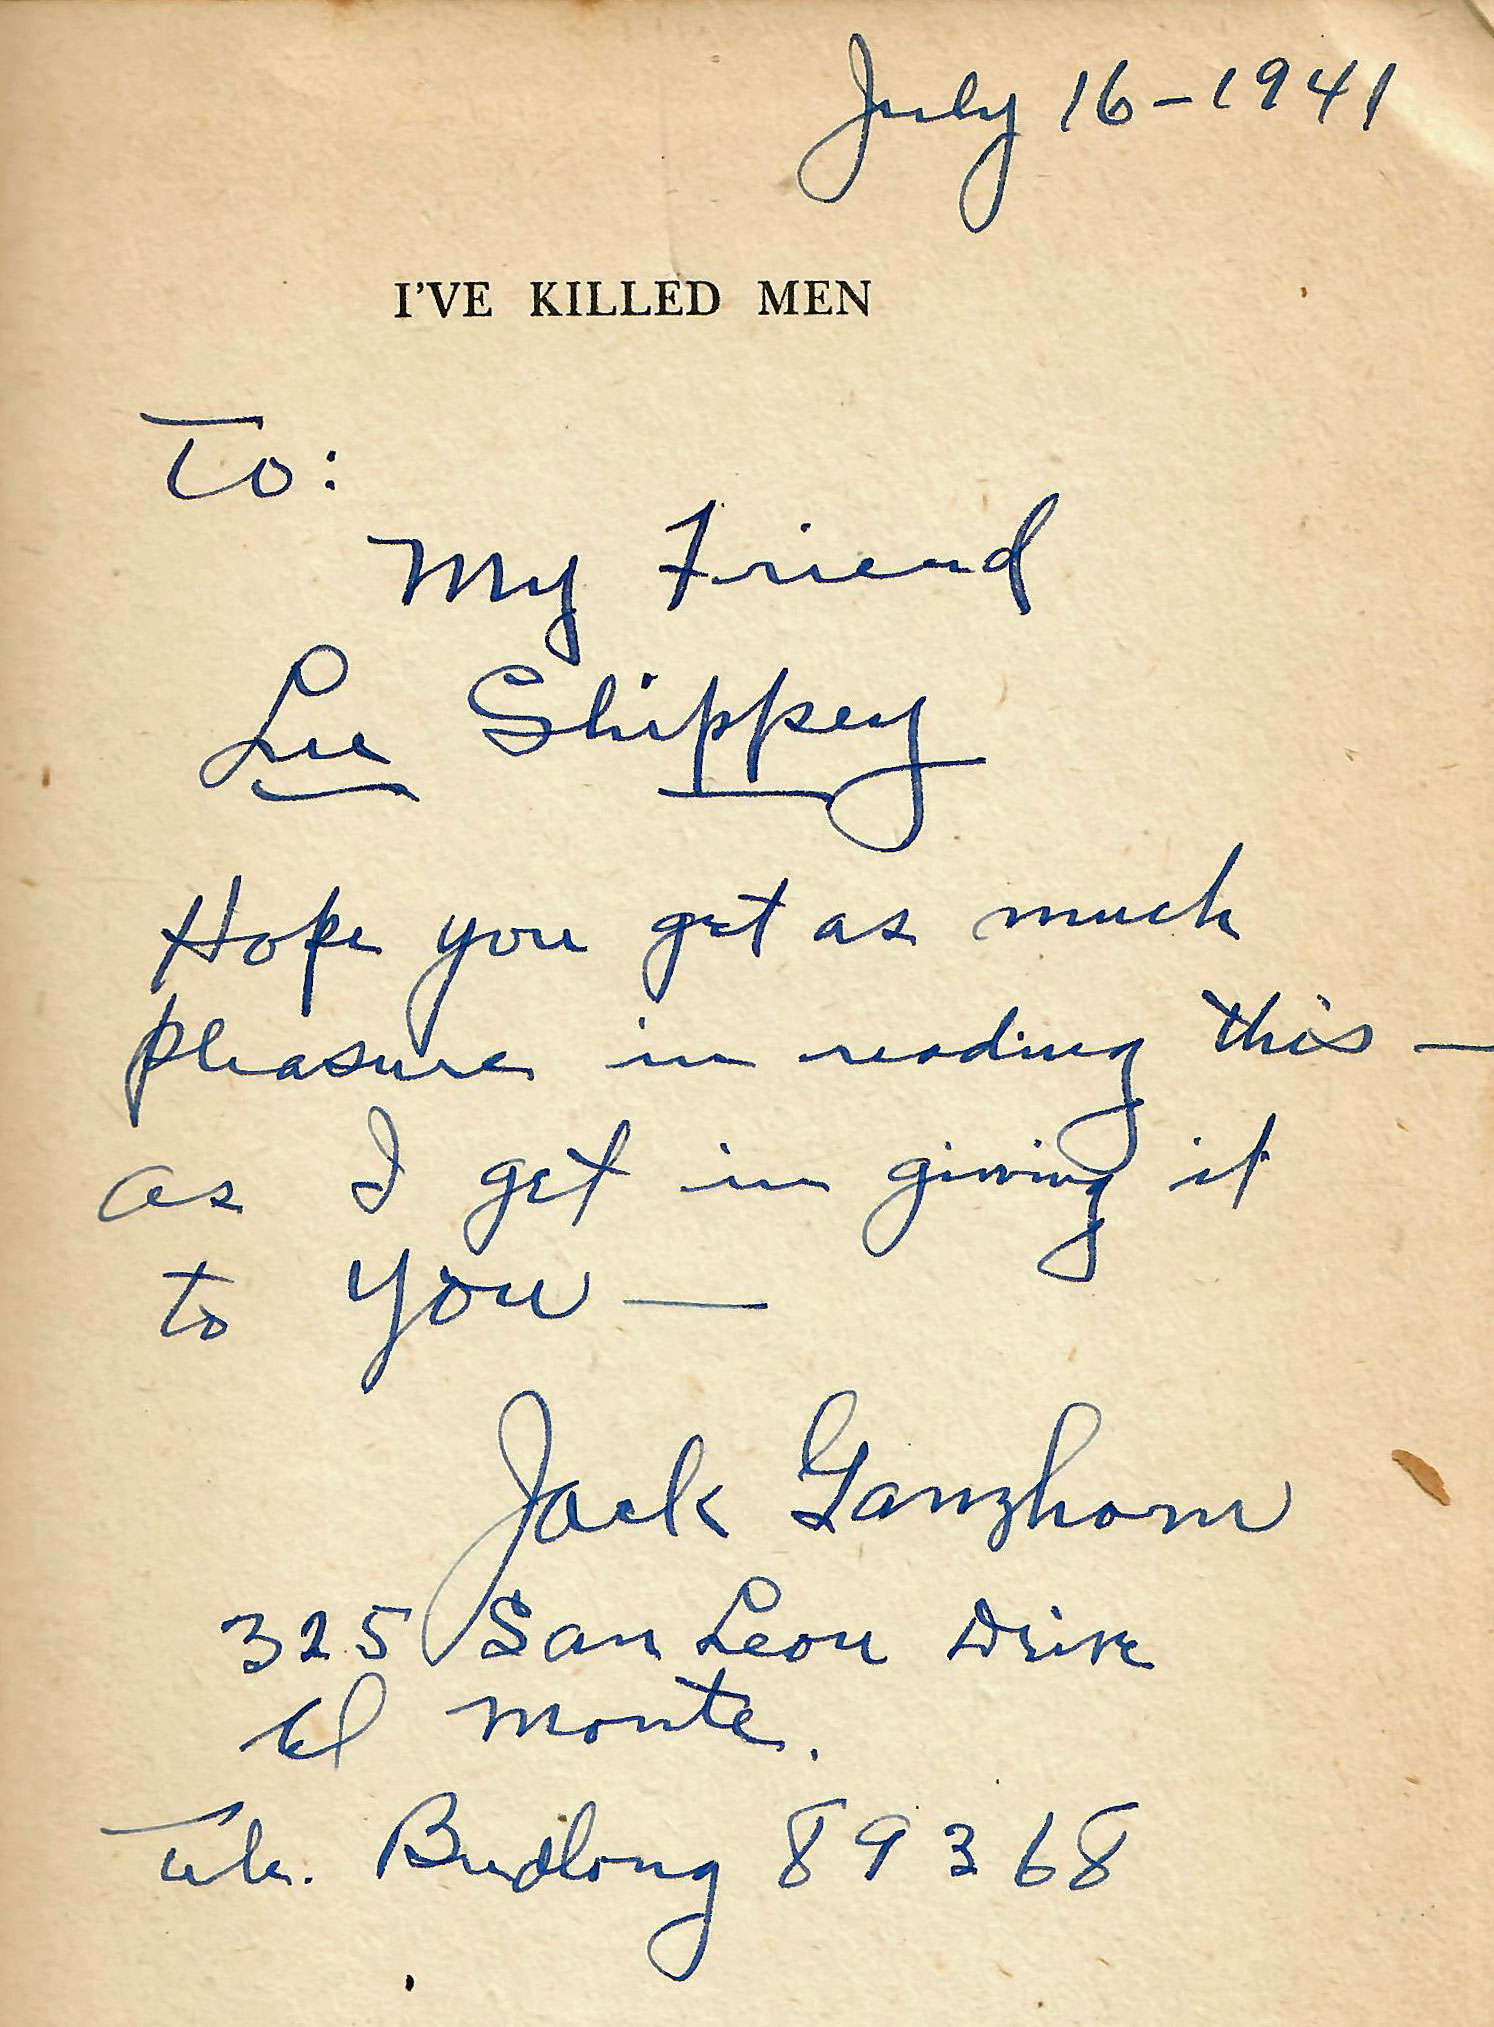 July 16-1941
I'VE KILLED MEN
To:
My Friend
Lee Shippey
Hope you get as much
pleasure in reading this —
as I get in giving it
to You —
Jack Ganzhorn
325 San Leon Drive
El Monte.
Tele. Budlong 89368